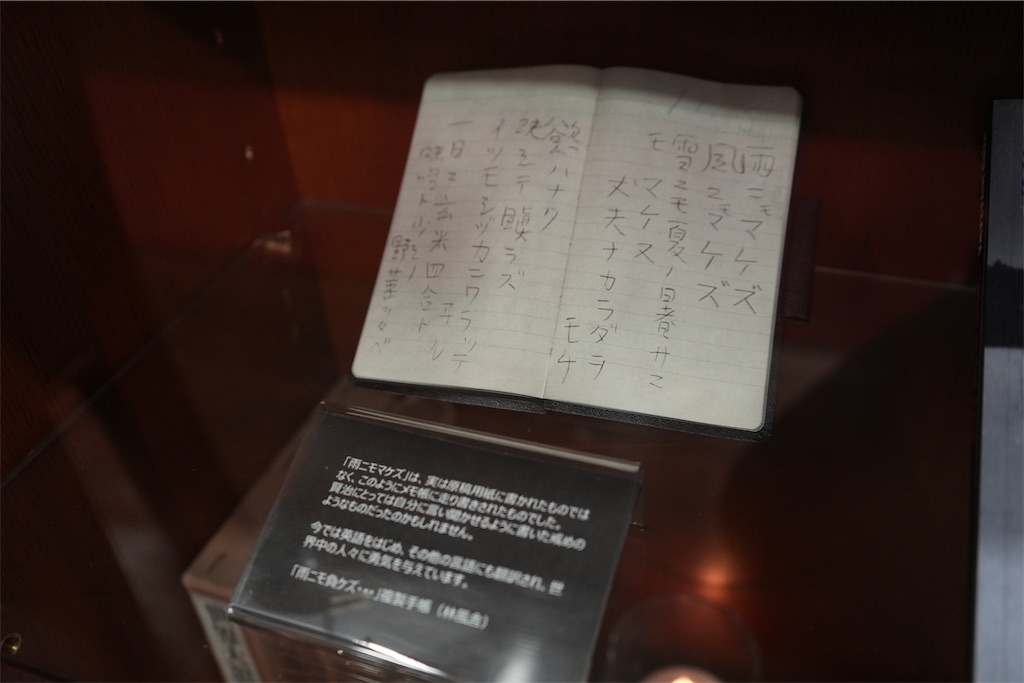 雨ニモマケズ
風ニモマケズ
雪ニモ夏ノ暑サニ
モ
マケヌ
丈夫ナカラダヲ
モチ
慾ハナク
決シテ瞋ラズ
イツモシヅカニワラッテ
ヰル
一日ニ玄米四合ト
味噌ト少シノ
野菜ヲタベ
「雨ニモマケズ」は、実は原稿用紙に書かれたものでは
なく、このようにメモ帳に走り書きされたものでした。
賢治にとっては自分に言い聞かせるように書いた戒めの
ようなものだったのかもしれません。
今では英語をはじめ、その他の言語にも翻訳され、世
界中の人々に勇気を与えています。
「雨ニモ負ケズ・・・」複製手帳（林風舎）